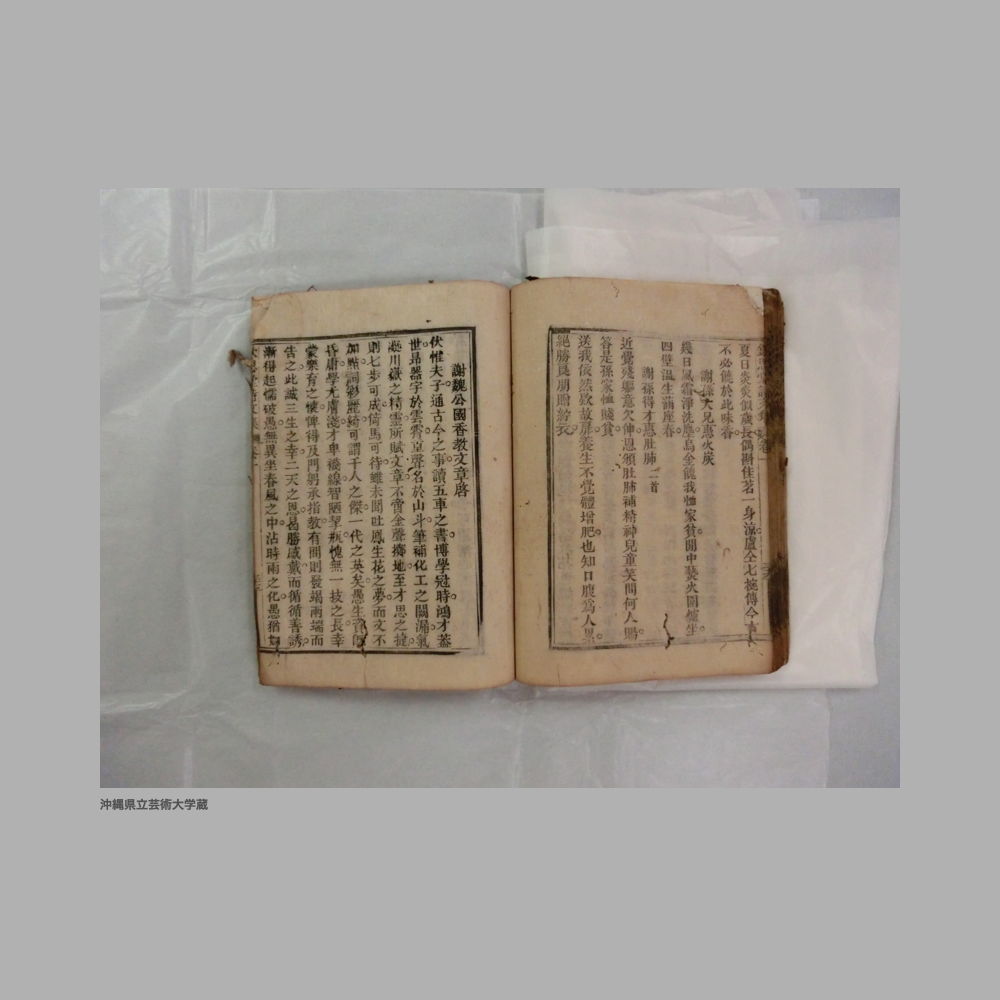 夏日炎炎似歲長偶斟佳茗一身涼盧仝七椀傳今古
不必能於此味香
謝孫大兄惠火炭
幾日風霜淨洗塵烏金能我恤家貧閒中藝火圍爐坐
四壁溫生滿座春
謝孫得才惠肚肺二首
近覺殘軀意欠伸恩頒肚肺補精神兒童笑問何人賜
答是孫家恤賤貧
送我依然欵故扉養生不覺體增肥也知口腹為人累
絕勝良朋贈紵衣
謝魏公國香教文章啓
伏惟夫子通古今之事讀五車之書博學冠時鴻才蓋
世昂器宇於雲霄立聲名於山斗筆補化工之闕漏氣
川嶽之精靈所賦文章不啻金聲擲地至才思之捷
則七步可成倚馬可待雖未聞吐鳳生花之夢而文不
加點詞彩麗綺可謂千人之傑一代之英矣愚生
昏庸學尤膚淺才卑襪線智陋挈瓶愧無一技之長幸
蒙樂育之懷俾得及門躬承指教有問則叚竭兩端而
告之此誠三生之幸二天之恩曷勝感戴而循循善誘
漸得起懦破愚無異坐春風之中沾時雨之化愚猶
沖縄県立芸術大学蔵